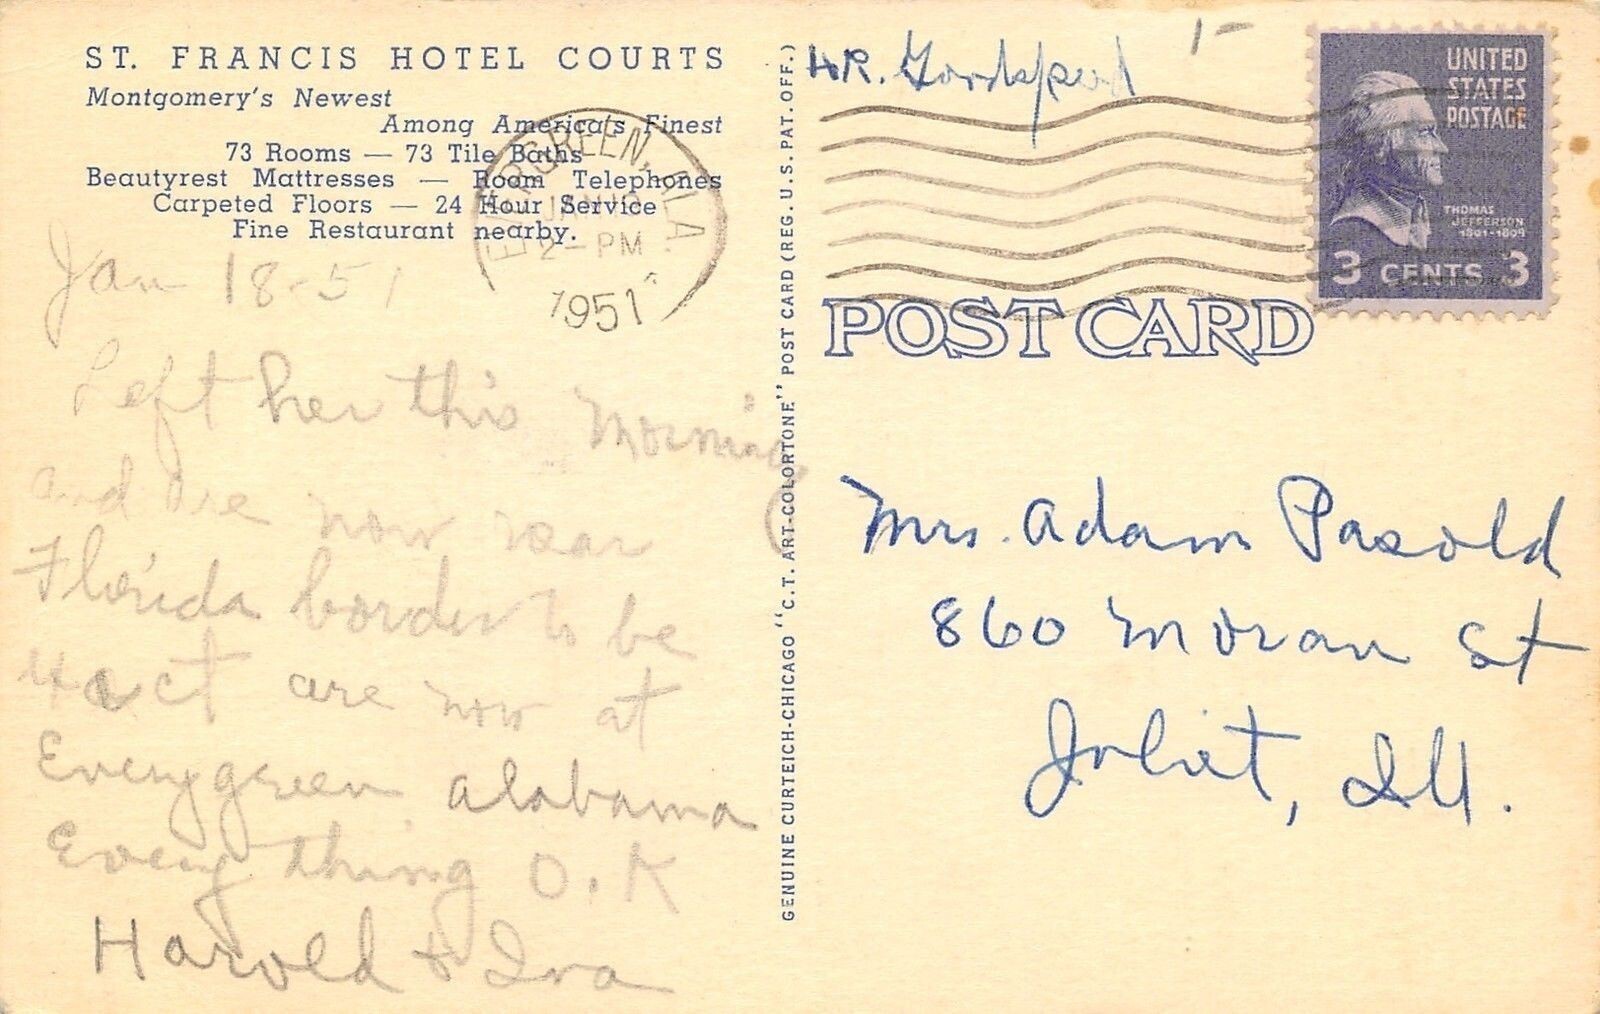 ST. FRANCIS HOTEL COURTS
Montgomery's Newest
Among America's Finest
73 Rooms — 73 Tile Baths
Beautyrest Mattresses — Room Telephones
Carpeted Floors — 24 Hour Service
Fine Restaurant nearby.
EVERGREEN, ALA.
JAN
2 - PM
1951
Jan 18-51
Left her this Morning
and are now near
Florida border to be
exact are now at
Everygreen alabama
Every thing O.K
Harold & Iva
GENUINE CURTEICH-CHICAGO "C. T. ART-COLORTONE" POST CARD (REG. U. S. PAT. OFF.)
1-
UNITED
STATES
POSTAGE
THOMAS
JEFFERSON
1801-1809
3 CENTS 3
POST CARD
Mrs. Adam Pasold
860 Moran St
Joliet, Ill.